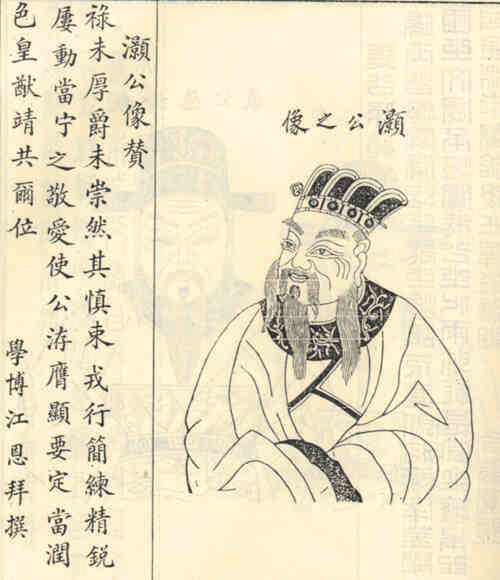 灝公之像
灝公像賛
祿未厚爵未崇然其慎東戎行簡練精鋭
屢動當宁之敬愛使公洊膺顯要定當潤
色皇猷靖共爾位 學博江恩拜撰